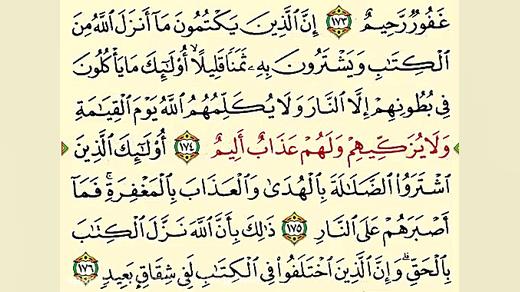 غَفُورٌ رَّحِيمٌ ١٧٣ إِنَّ ٱلَّذِينَ يَكْتُمُونَ مَآ أَنزَلَ ٱللَّهُ مِنَ
ٱلْكِتَٰبِ وَيَشْتَرُونَ بِهِۦ ثَمَنًا قَلِيلًا ۙ أُو۟لَٰٓئِكَ مَا يَأْكُلُونَ
فِى بُطُونِهِمْ إِلَّا ٱلنَّارَ وَلَا يُكَلِّمُهُمُ ٱللَّهُ يَوْمَ ٱلْقِيَٰمَةِ
وَلَا يُزَكِّيهِمْ وَلَهُمْ عَذَابٌ أَلِيمٌ ١٧٤ أُو۟لَٰٓئِكَ ٱلَّذِينَ
ٱشْتَرَوُا۟ ٱلضَّلَٰلَةَ بِٱلْهُدَىٰ وَٱلْعَذَابَ بِٱلْمَغْفِرَةِ ۚ فَمَآ
أَصْبَرَهُمْ عَلَى ٱلنَّارِ ١٧٥ ذَٰلِكَ بِأَنَّ ٱللَّهَ نَزَّلَ ٱلْكِتَٰبَ
بِٱلْحَقِّ ۗ وَإِنَّ ٱلَّذِينَ ٱخْتَلَفُوا۟ فِى ٱلْكِتَٰبِ لَفِى شِقَاقٍۭ بَعِيدٍ ١٧٦